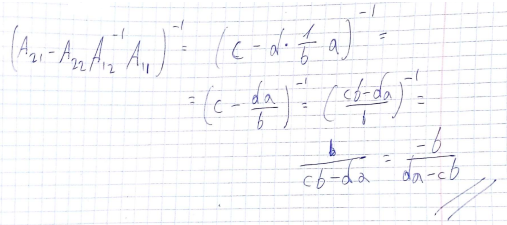 (A₂₁ - A₂₂ A₁₂⁻¹ A₁₁)⁻¹ = (c - d · 1/b a)⁻¹ =
= (c - da/b)⁻¹ = ((cb-da)/b)⁻¹ =
b/(cb-da) = -b/(da-cb)